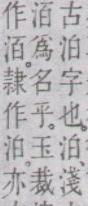 古泊字也。泊、淺
洦爲名乎。玉裁
作洦。隸作泊。亦